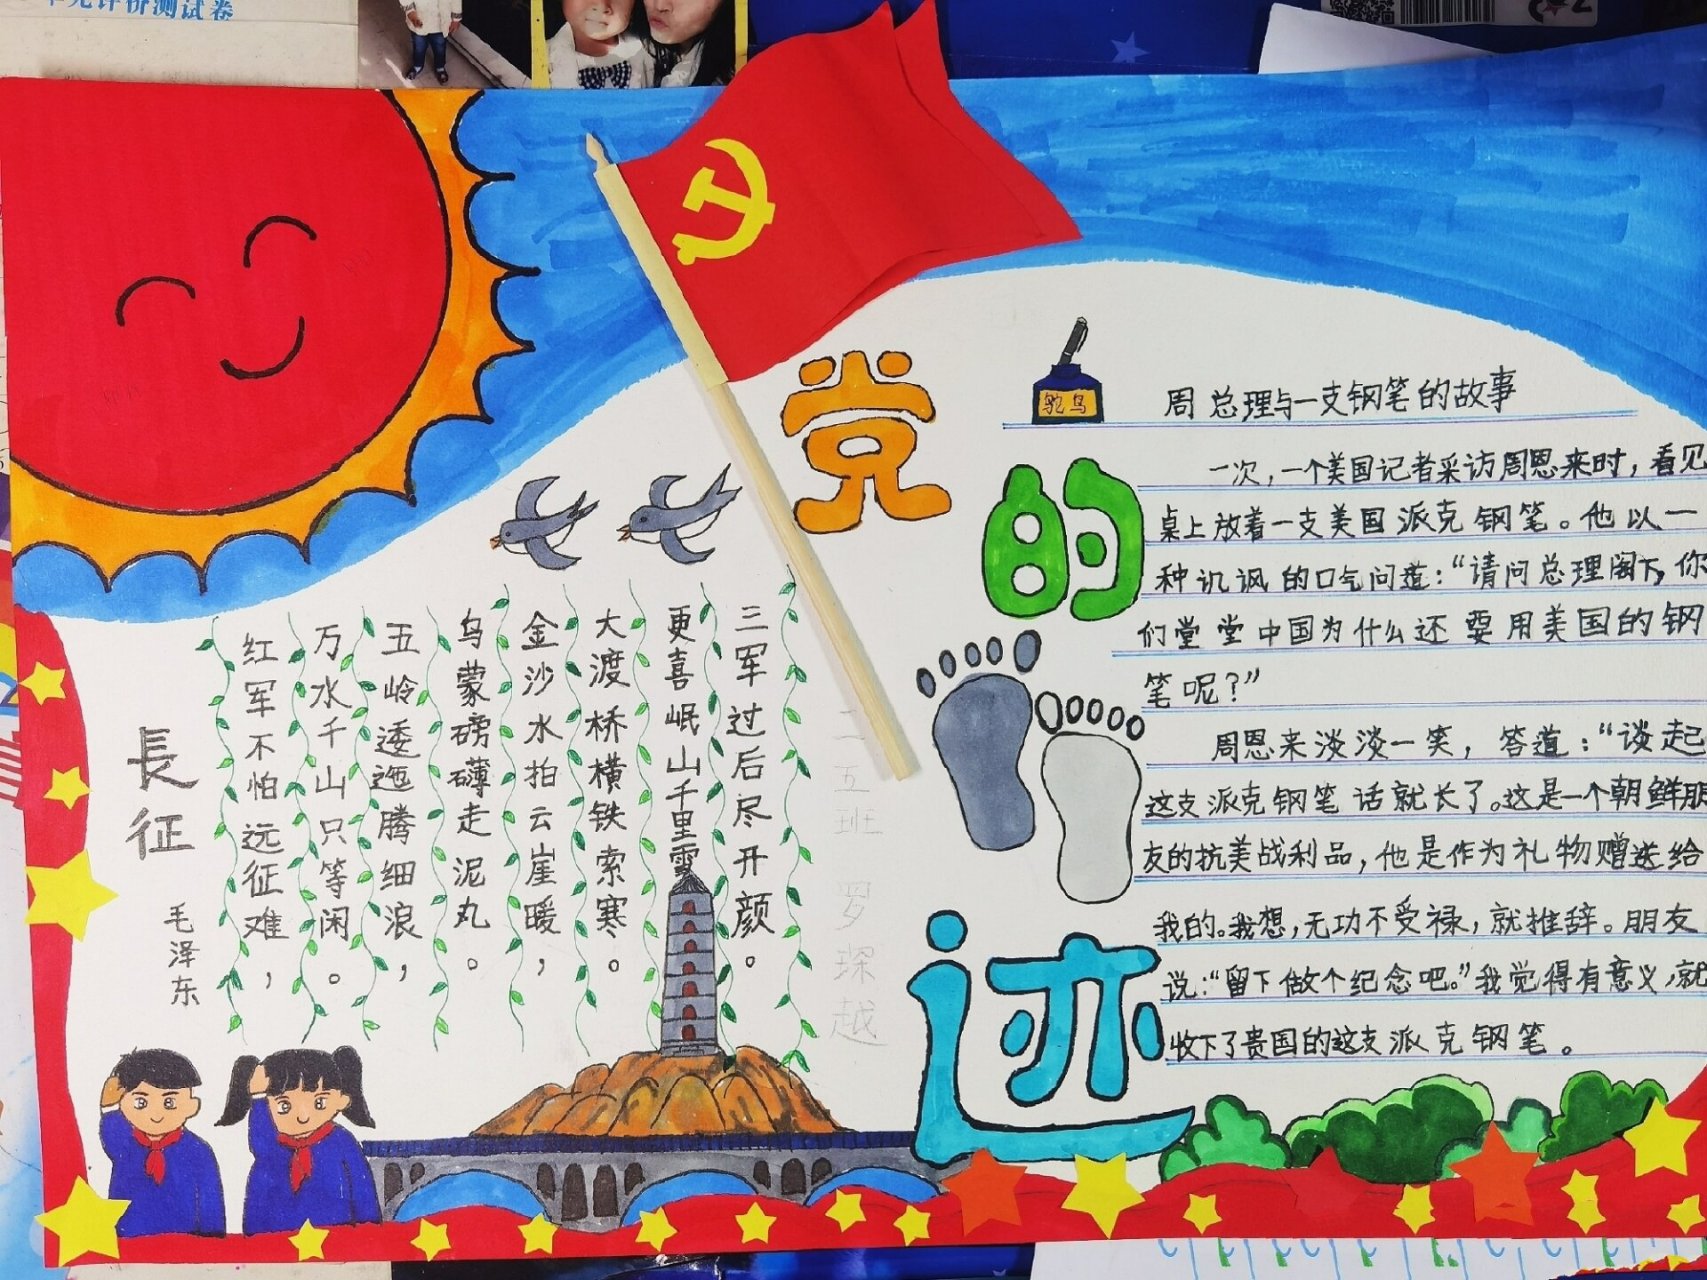 单元评价测试卷
党的足迹
長征
毛泽东
红军不怕远征难，
万水千山只等闲。
五岭逶迤腾细浪，
乌蒙磅礴走泥丸。
金沙水拍云崖暖，
大渡桥横铁索寒。
更喜岷山千里雪
三军过后尽开颜。
二五班 罗琛越
鸵鸟
周总理与一支钢笔的故事
一次，一个美国记者采访周恩来时，看见
桌上放着一支美国派克钢笔。他以一
种讥讽的口气问道：“请问总理阁下，你
们堂堂中国为什么还要用美国的钢
笔呢？”
周恩来淡淡一笑，答道：“谈起
这支派克钢笔话就长了。这是一个朝鲜朋
友的抗美战利品，他是作为礼物赠送给
我的。我想，无功不受禄，就推辞。朋友
说：“留下做个纪念吧。”我觉得有意义，就
收下了贵国的这支派克钢笔。